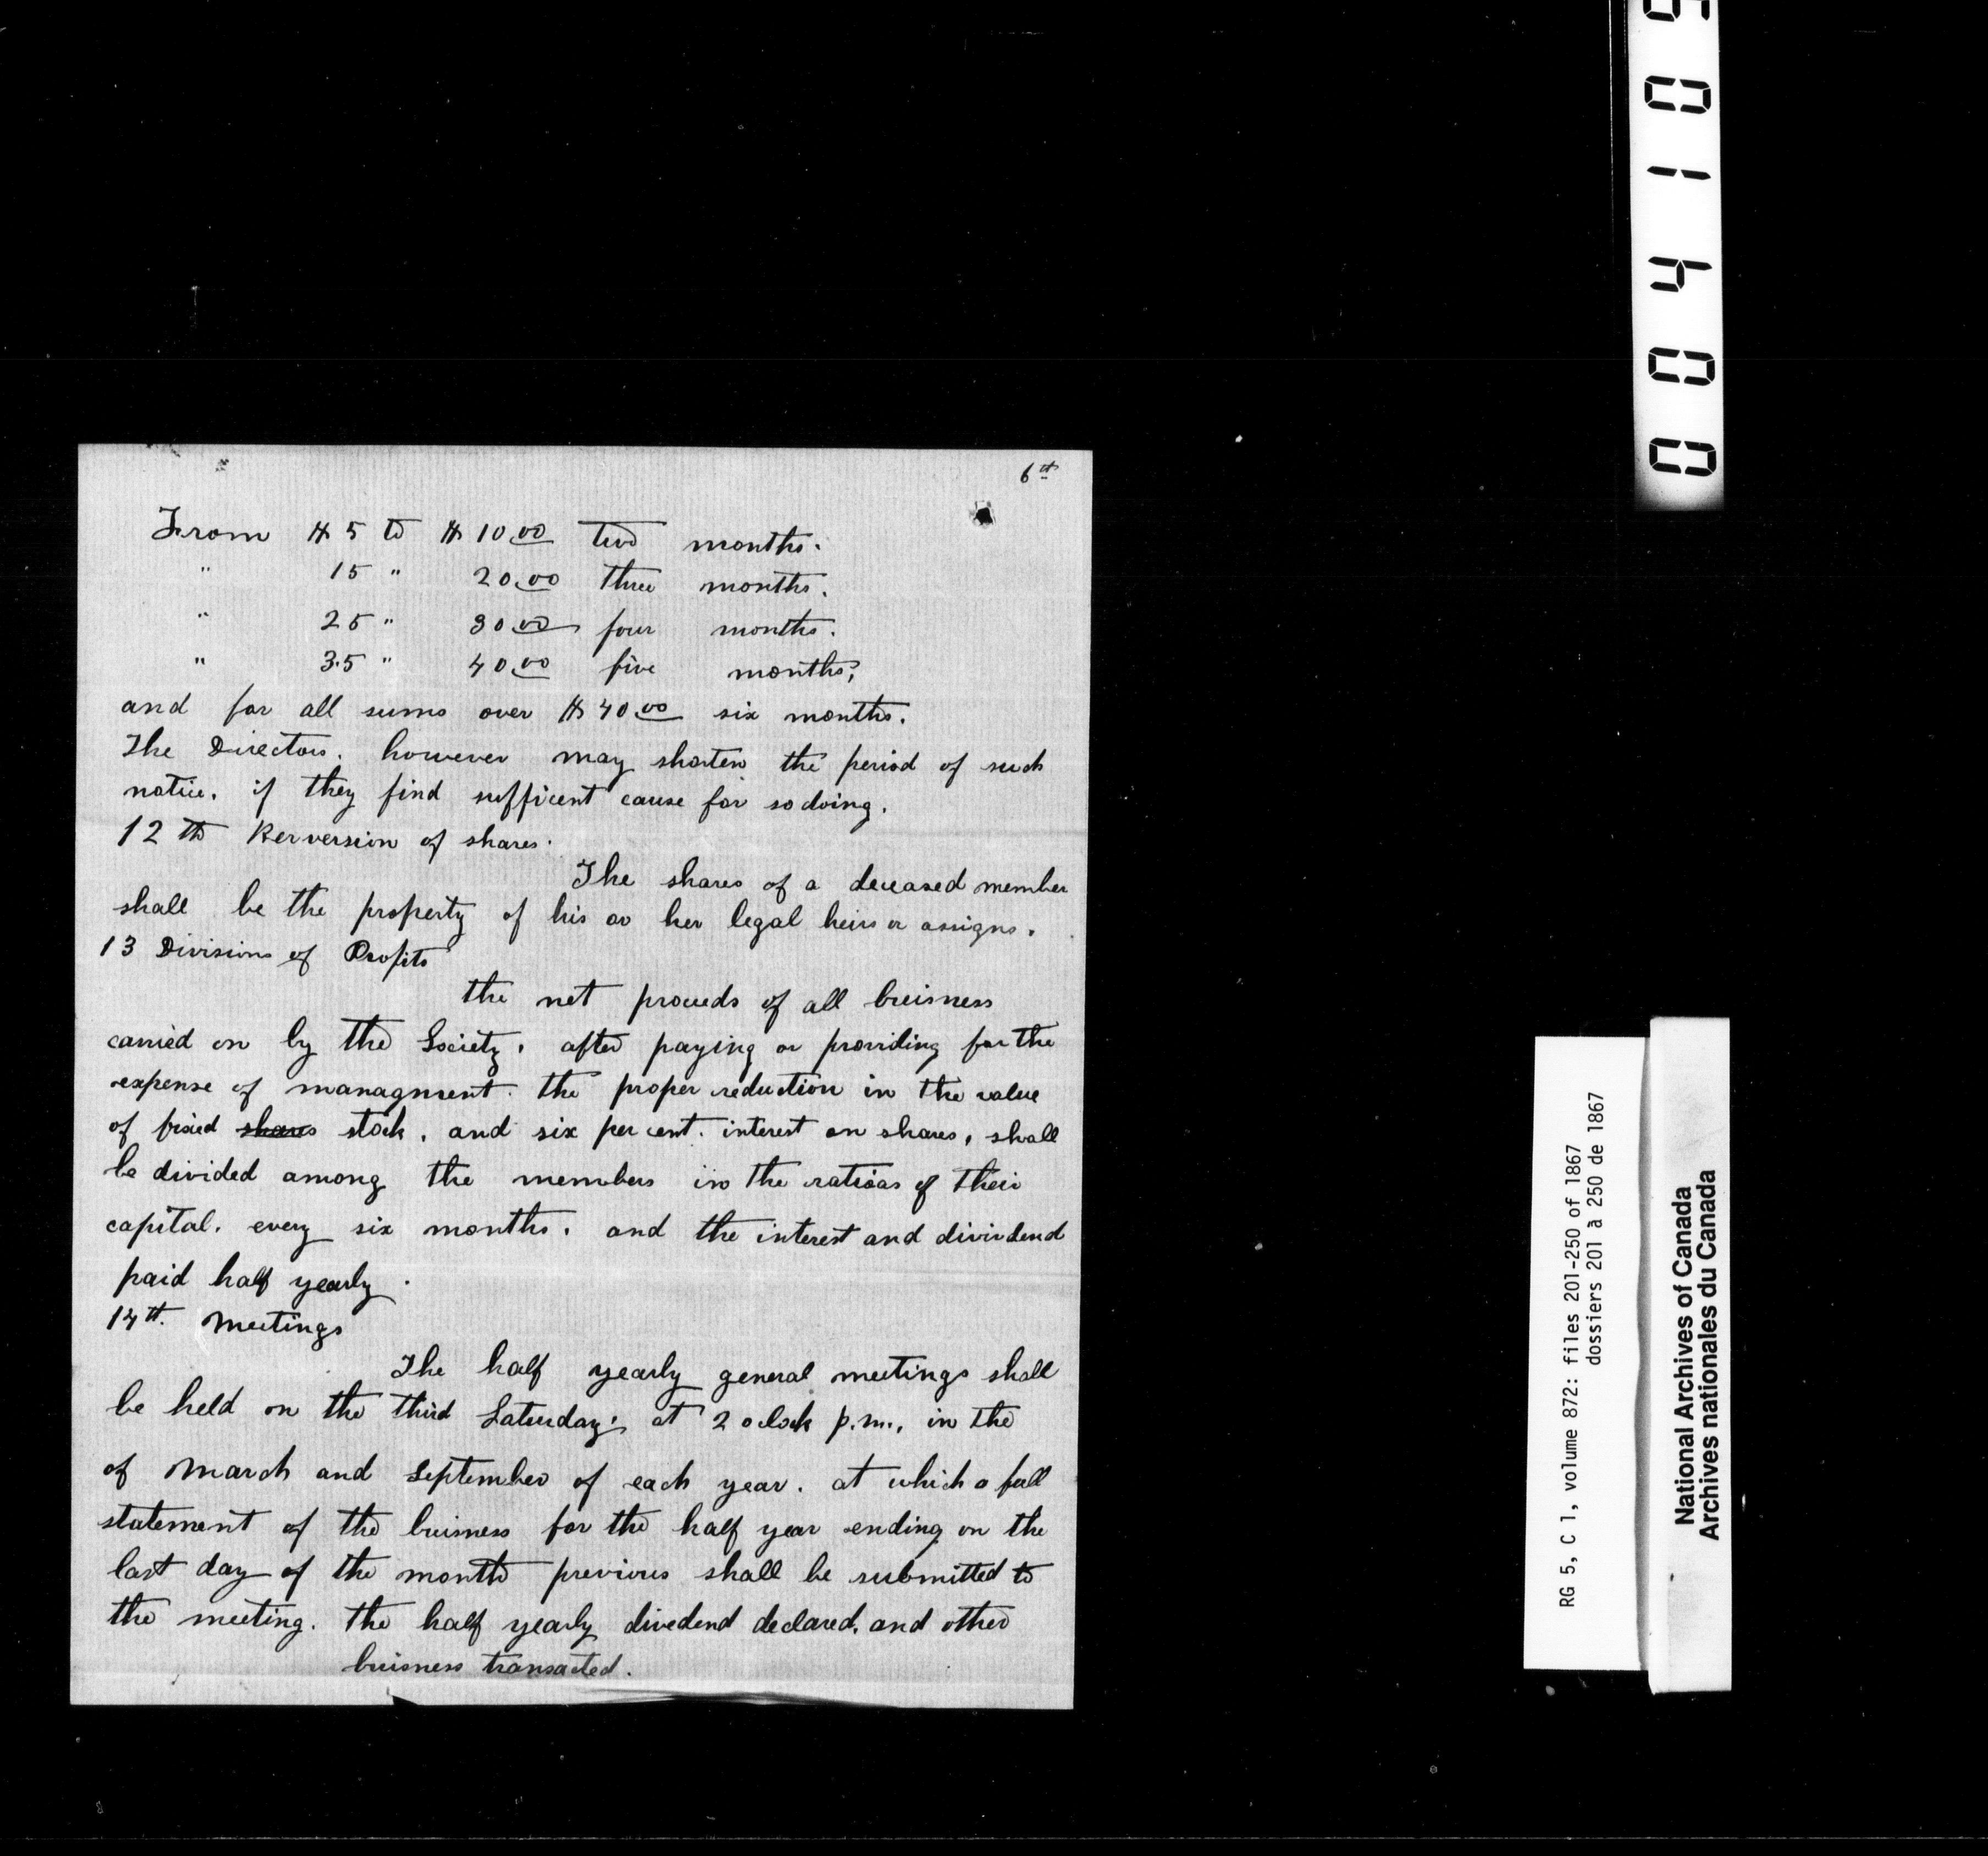 6th
From $ 5 to $ 10.00 two months.
" 15 " 20.00 three months.
" 25 " 30.00 four months.
" 35 " 40.00 five months;
and for all sums over $ 40.00 six months.
The Directors. however may shorten the period of such
notice. if they find sufficent cause for so doing.
12 th Rerversion of shares.
The shares of a deceased member
shall be the property of his or her legal heirs or assigns.
13 Divisions of Profits
the net proceeds of all buisness
carried on by the Society. after paying or providing for the
expense of managment. the proper reduction in the value
of fixed shares stock. and six per cent. interest on shares, shall
be divided among the members in the ratioas of their
capital. every six months. and the interest and divirdend
paid half yearly.
14th. Meetings
The half yearly general meetings shall
be held on the third Saturday. at 2 oclock p.m., in the
of March and September of each year. at which a full
statement of the buisness for the half year ending on the
last day of the month previous shall be submitted to
the meeting. the half yearly divedend declared. and other
buisness transacted.
0 0 4 1 0 5
RG 5, C 1, volume 872: files 201-250 of 1867
dossiers 201 à 250 de 1867
National Archives of Canada
Archives nationales du Canada